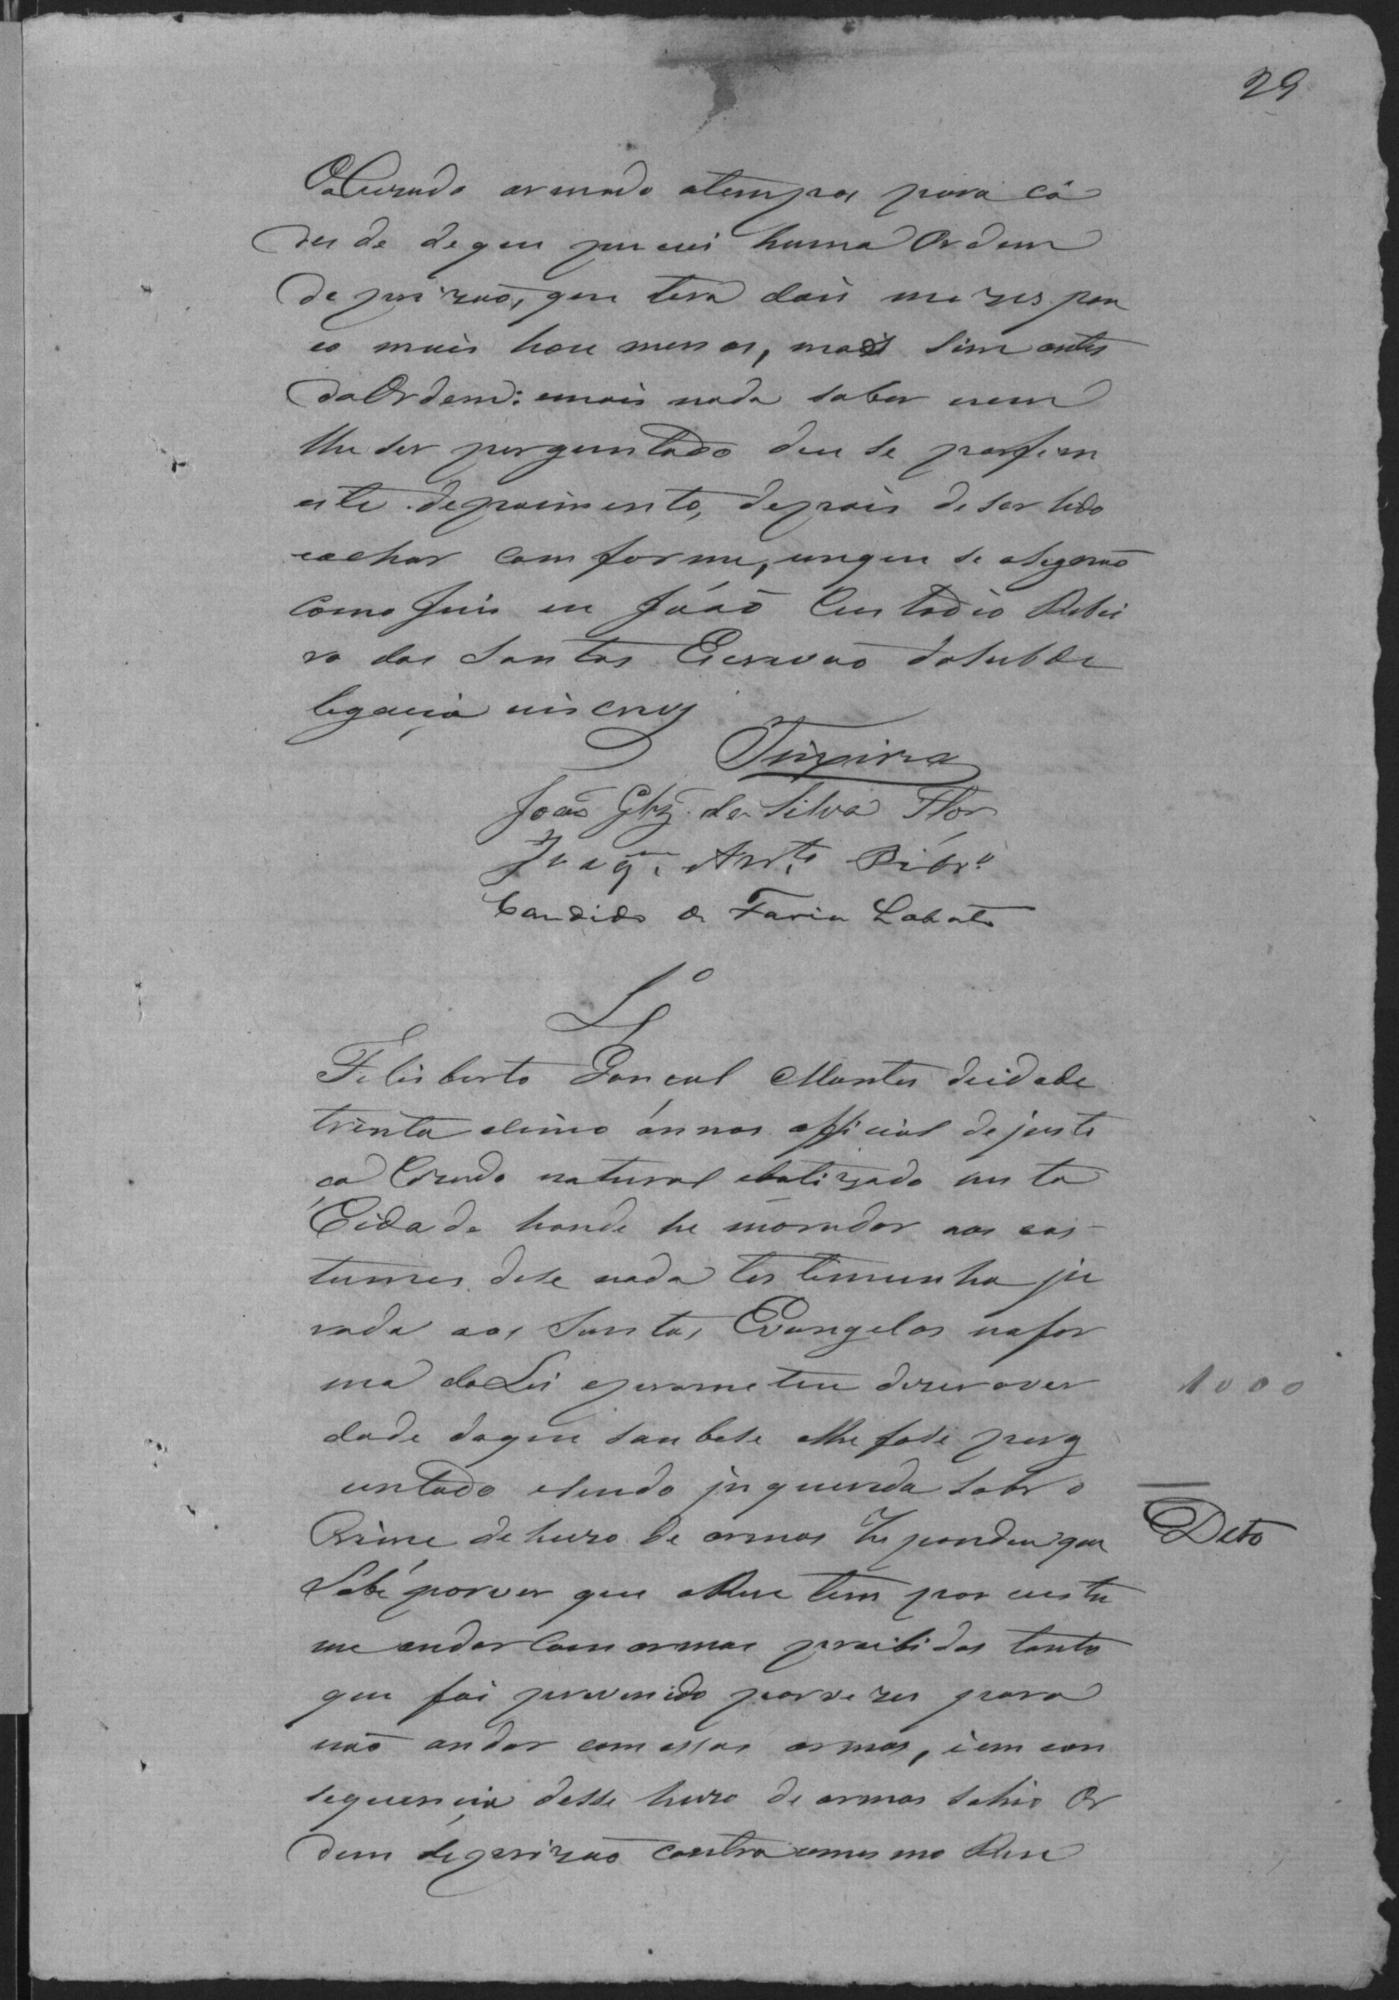 29
OaCuzado armado atempos para cá
desde dequi purcui huma Ordem
de prizaõ, que terá dois mezes pou
co mais hou menos, mas sim antes
daOrdem: emais nada saber nem
lhe ser perguntado deu se porfim
este depoimento, depois de ser lido
eachar comforme, emque se asignaõ
como Juis eu Joáo Custodio Ribei
ro dos Santos Escrivaõ dasubde
legacia escrevy
Teixeira
Joaõ Glz. da Silva Flor
Joaqm. Anto. Ribro.
Candido de Faria Lobato
Felisberto Goncal Montes deidade
trinta eSinco ánnos official dejusti
ca Cazado natural ebatizado nesta
Cidade honde he morador aos cos-
tumes dise nada testemunha ju
rada aos Santos Evangelos nafor
ma daLei eprometeu dizer aver
dade doque soubese elhe fose perg
untado esendo inquerida sobr o
Crime de huzo de armas Respondeu que
Sabe porver que oReu tem por custu
me andar Com armas proibidas tanto
que foi prevenido por vezes para
naõ andar com essas armas, i em con
sequencia desse huzo de armas sahio Or
dem de prizaõ contra omesmo Reu
1000
Dito